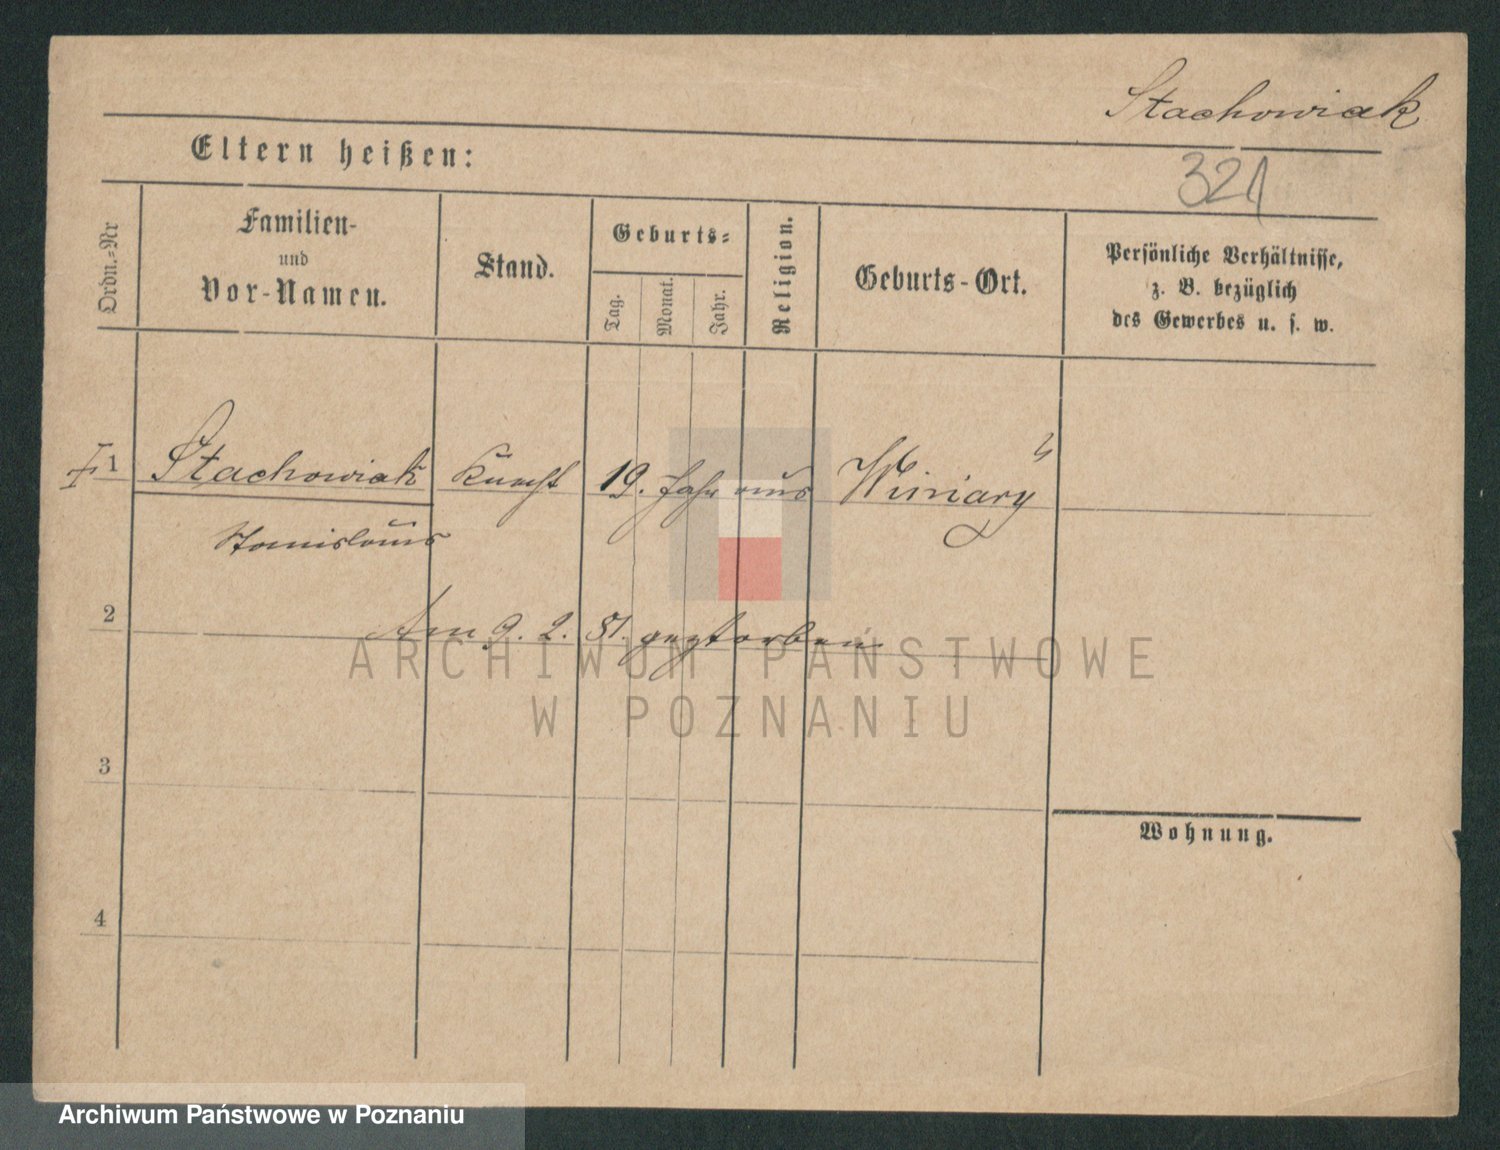 Stachowiak
321
Eltern heißen:
Ordn.=Nr
Familien-
und
Vor-Namen.
Stand.
Geburts=
Tag.
Monat.
Jahr.
Religion.
Geburts-Ort.
Persönliche Verhältnisse,
z. B. bezüglich
des Gewerbes u. s. w.
1 Stachowiak Knecht 19. Jahr aus Winiary
Stanislaus
2
Am 9. 2. 51. gestorben
3
Wohnung.
4
ARCHIWUM PAŃSTWOWE
W POZNANIU
Archiwum Państwowe w Poznaniu